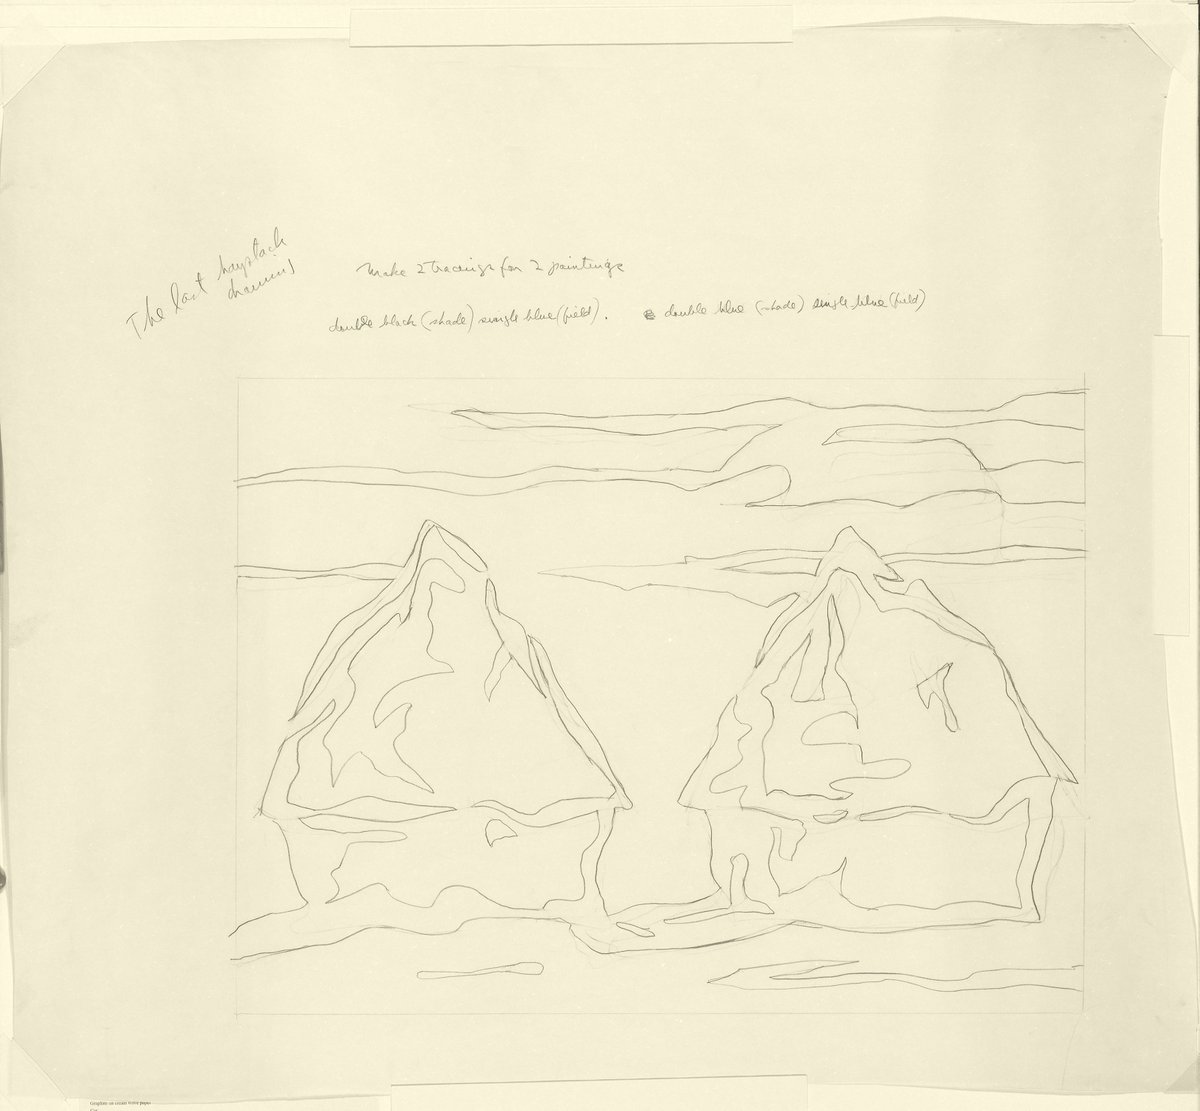 The last haystack
drawing
Make 2 tracings for 2 paintings
double black (shade) single blue (field). double blue (shade) single blue (field)
Graphite on cream wove paper